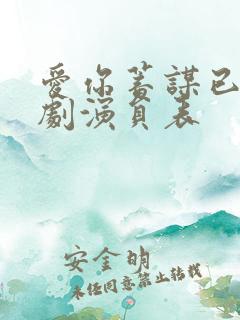 愛你蓄謀已
劇演員表
安金明
未经同意禁止转载